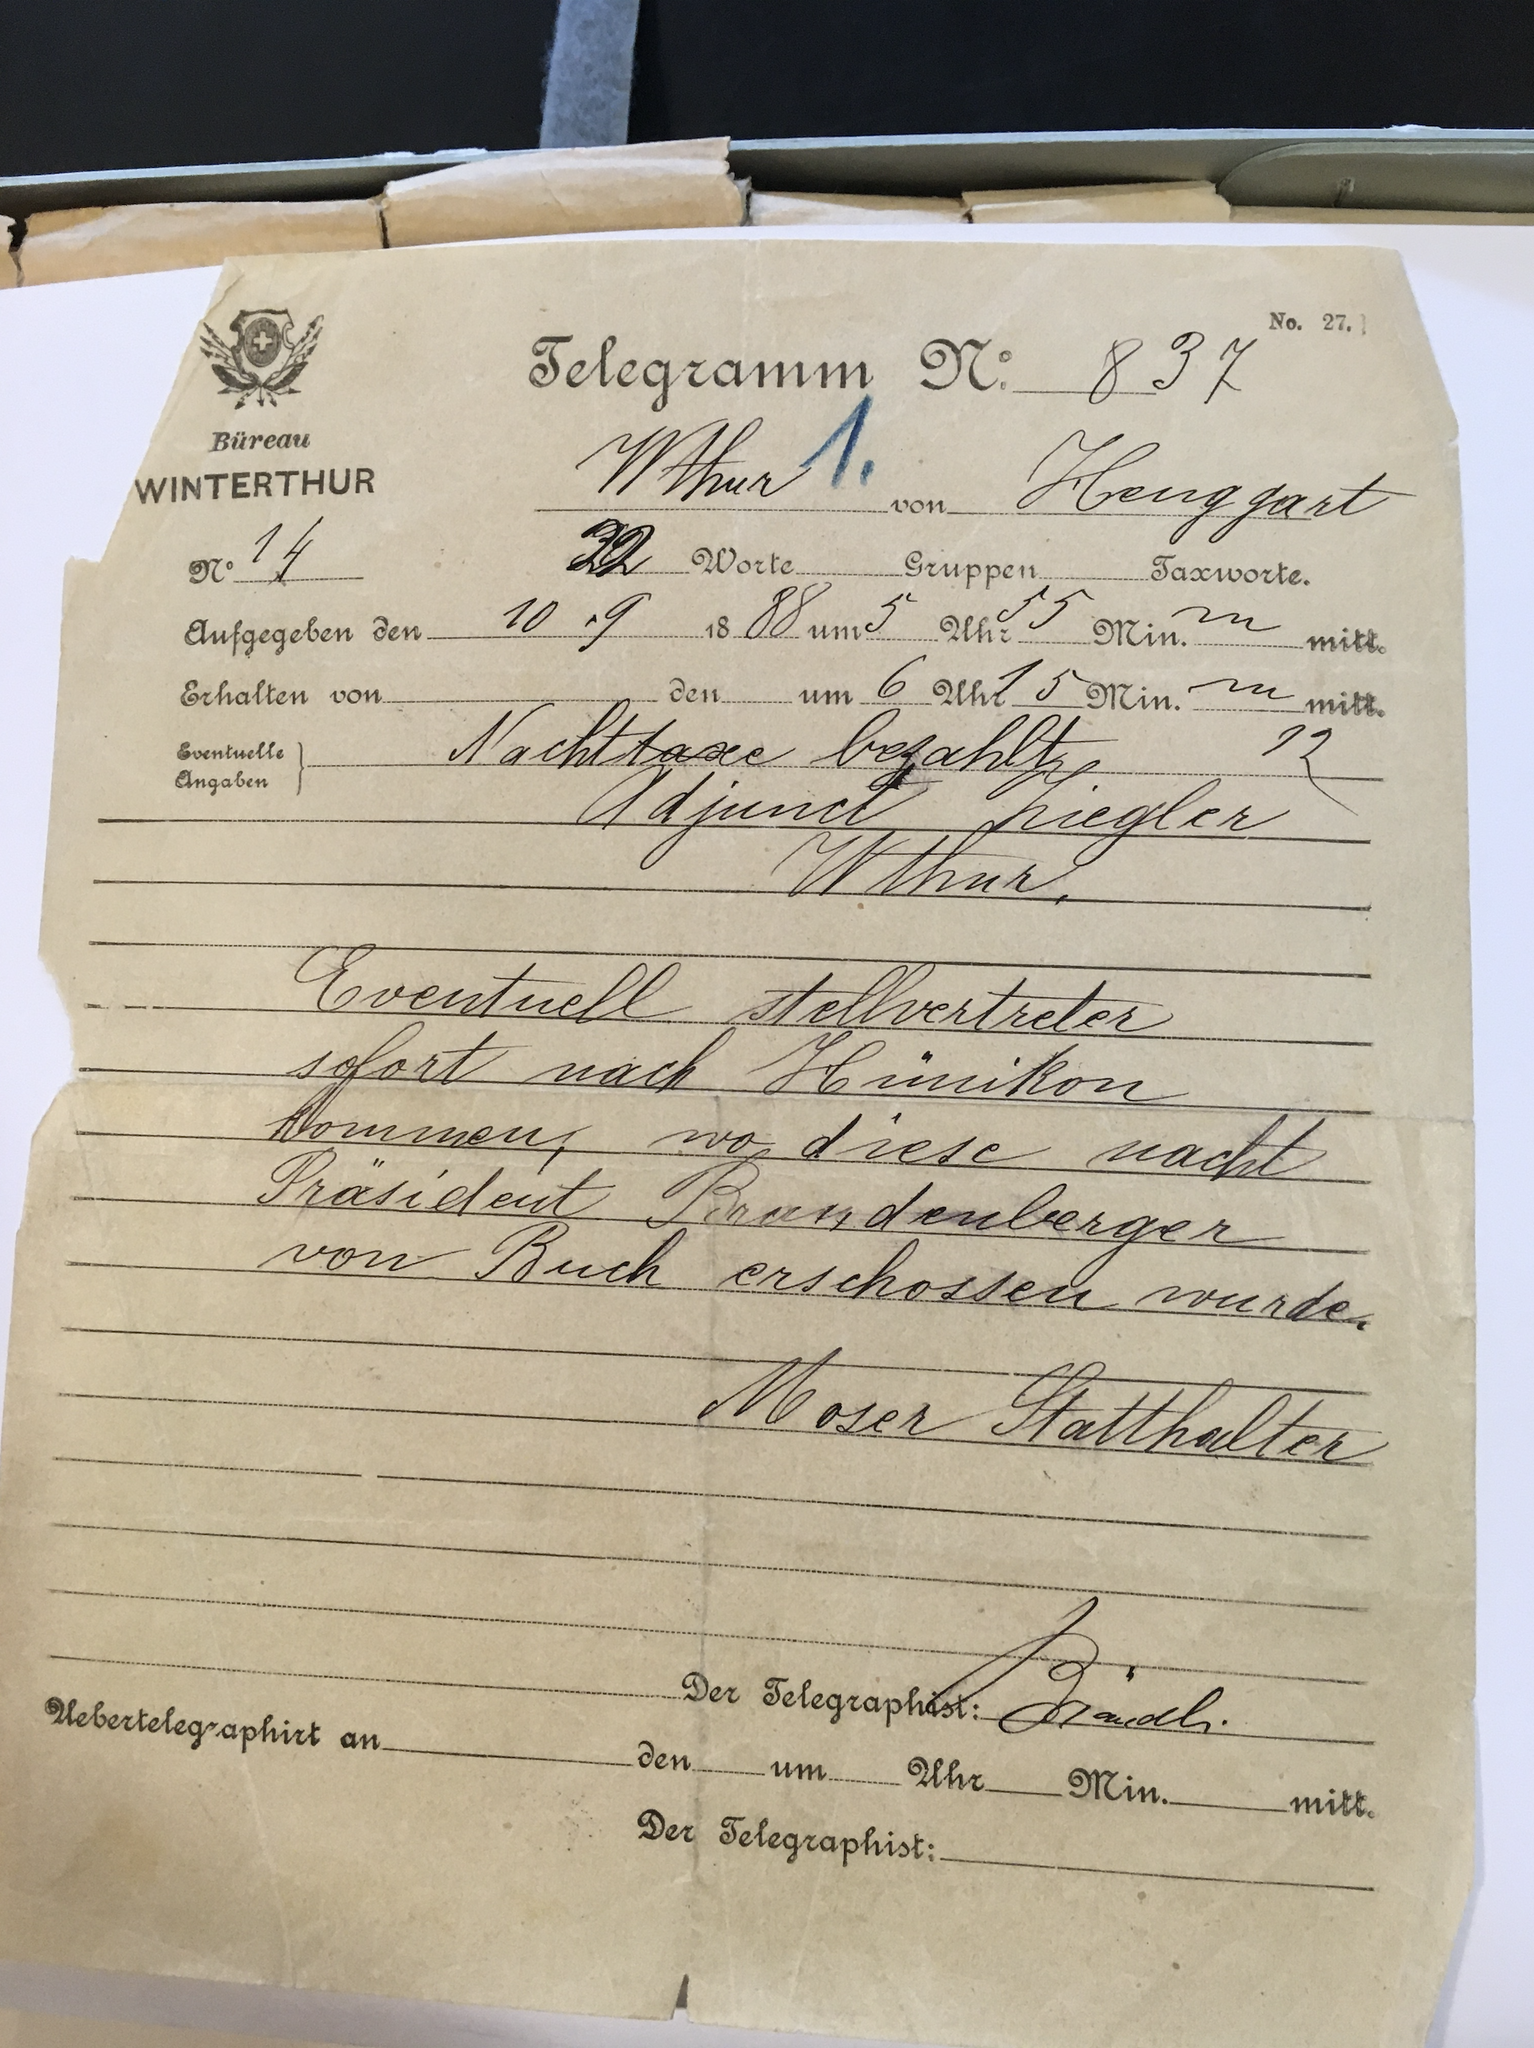 No. 27.
Telegramm No. 837
Büreau
WINTERTHUR
Wthur 1. von Henggart
No 14 32 Worte Gruppen Taxworte.
Aufgegeben den 10.9 1888 um 5 Uhr 55 Min. m mitt.
Erhalten von den um 6 Uhr 15 Min. m mitt.
Eventuelle Angaben } Nachttaxe bezahlt, 12
Adjunct Ziegler
Wthur.
Eventuell stellvertreter
sofort nach Hünikon
kommen, wo diese nacht
Präsident Brandenberger
von Buch erschossen wurde.
Moser Statthalter
Der Telegraphist: Brändli.
Uebertelegraphirt an den um Uhr Min. mitt.
Der Telegraphist: